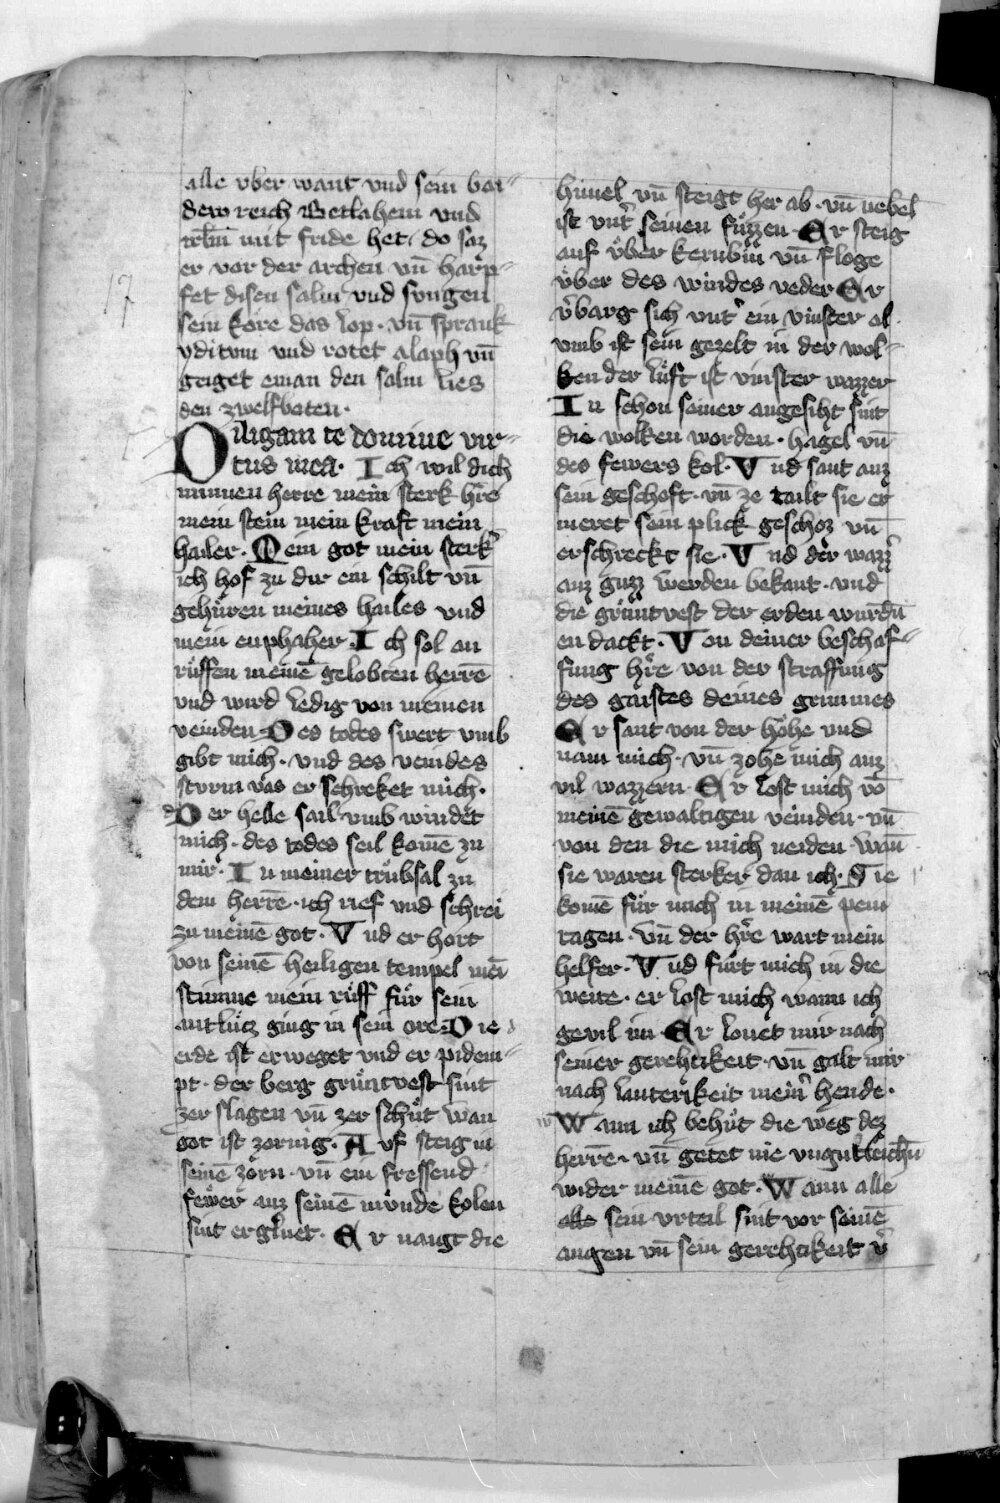 17
alle vber want vnd sein bai-
dew reich Betlahem vnd
irlm̄ mit fride het. do saz
er vor der archen vn̄ harp-
fet disen salm vnd sungen
sein kore das lop. vn̄ sprank
yditum vnd rotet alaph vn̄
geiget eman den salm lies
den zwelfboten.
Diligam te domine vir-
tus mea. Ich wil dich
minnen herre mein sterk hr̄e
mein stein mein kraft mein
hailer. Mein got mein sterk̉
ich hof zu dir ein schilt vn̄
gehuͤren meines hailes vnd
mein enphaher. Ich sol an
ruͤffen meinē gelobten herrē
vnd wird ledig von meinen
veinden. Des todes swert vmb
gibt mich. vnd des veindes
sturm vas er schreket mich.
Der helle sail vmb windet
mich. des todes seil komē zu
mir. In meiner truͤbsal zu
dem herrē. ich rief vnd schrei
zu meinē got. Vnd er hort
von seinē heiligen tempel mei
stimme mein ruͤff fuͤr sein
antluͤcz ging in sein ore. Die
erde ist erweget vnd er pidem-
pt. der berg gruͤntvest sint
zer slagen vn̄ zer schuͤt wan
got ist zornig. Auf steig in
seinē zorn. vn̄ ein fressend
fewer auz seinē munde kolen
sint ergluet. Er naugt die
himel vn̄ steigt her ab. vn̄ nebel
ist vnt̉ seinen fuͤzzen. Er steig
auf vͤber kerubin vn̄ floge
vͤber des windes veder Er
v̉barg sich vnt̉ ein vinster al
vmb ist sein gezelt in der wol-
ken der luͤft ist vinster wazzer
In schon seiner angesiht sint
die wolken worden. hagel vn̄
des fewers kol. Vnd sant auz
sein geschoft. vn̄ ze tailt sie er
meret sein plick geschoz vn̄
erschreckt sie. Vnd der wazz̉
auz guzz werden bekant. vnd
die gruͤntvest der erden wurdn̄
en dackt. Von deiner beschaf-
fung hr̄e von der straffung
des gaistes deines grimmes
Er sant von der hoͤhe vnd
nam mich. vn̄ zohe mich auz
vil wazzern. Er lost mich vō
meinē gewaltigen veinden. vn̄
von den die mich neiden. wan̄
sie waren sterker dan ich. Sie
komē fuͤr mich in meinē pein
tagen. vn̄ der hr̄e wart mein
helfer. Vnd fuͤrt mich in die
weite. er lost mich wann ich
gevil im. Er lonet mir nach
seiner gerehtikeit. vn̄ galt mir
nach lauterikeit mein̉ hende.
Wann ich behuͤt die weg dez
herrē. vn̄ getet nie vnguͤtleichn̄
wider meinē got. Wann alle
alle sein vrteil sint vor seinē
augen vn̄ sein gerehtikeit v̉